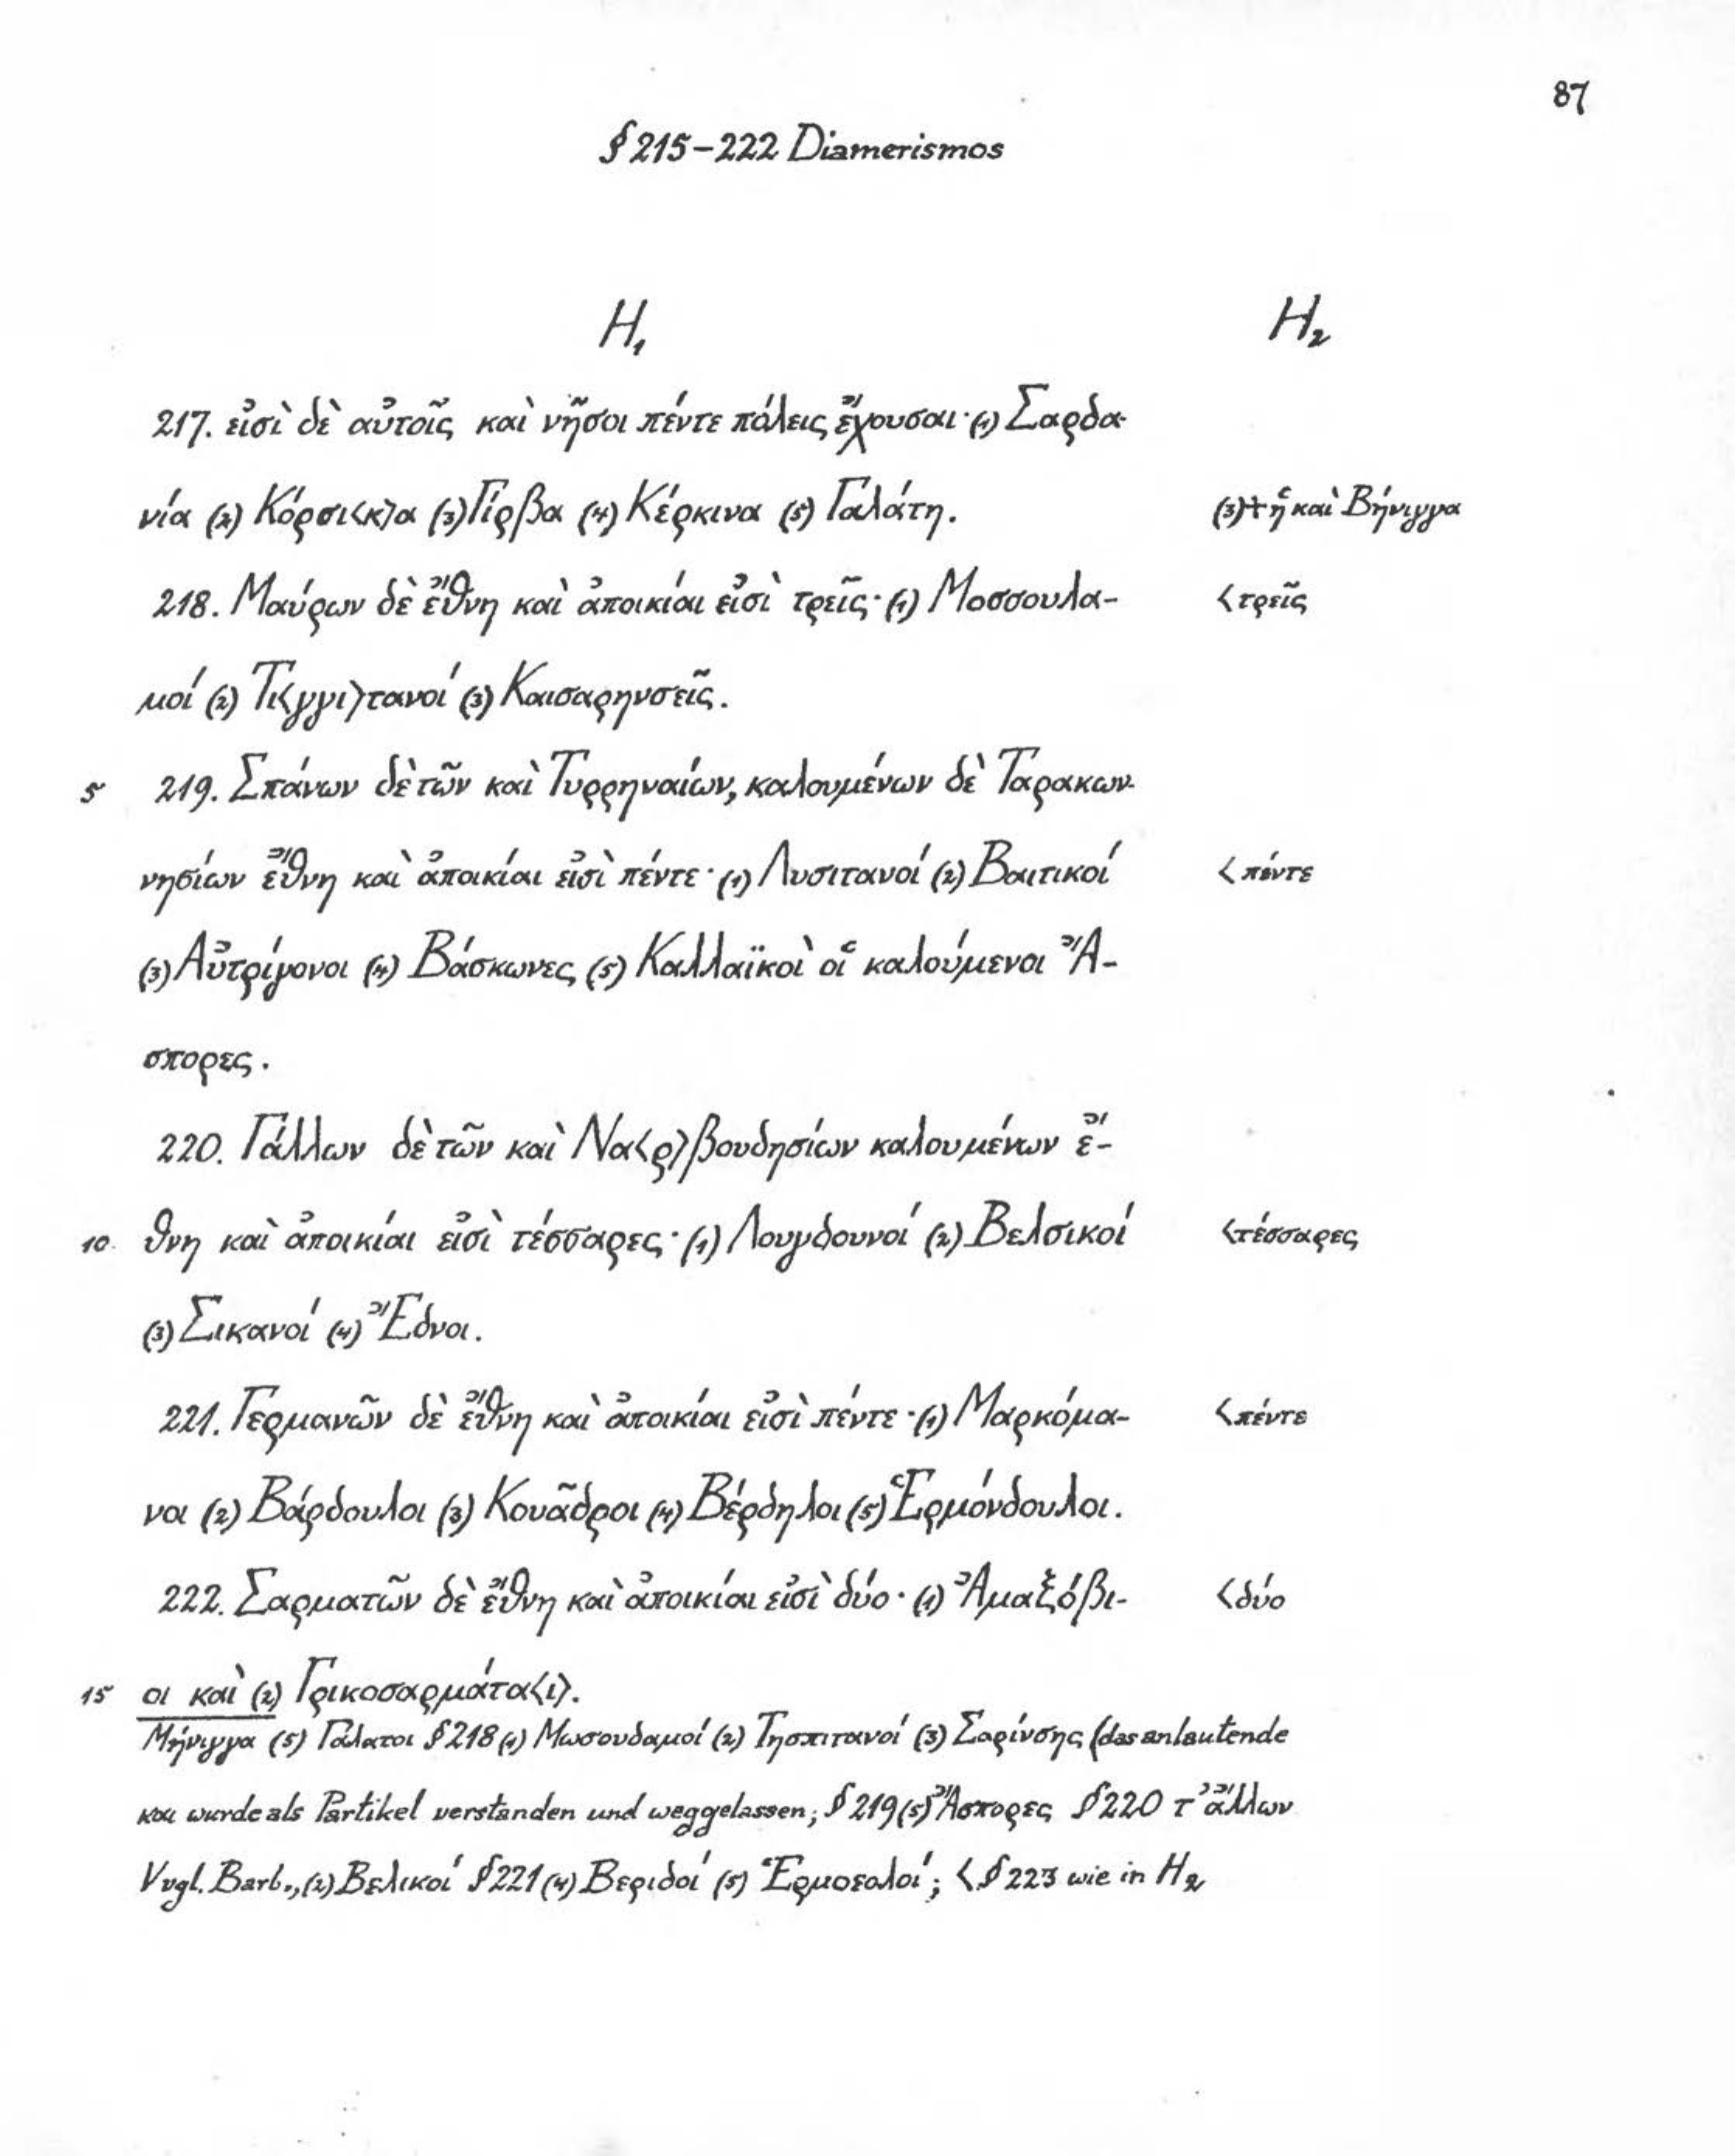 87
§ 215–222 Diamerismos
H₁ H₂
217. εἰσὶ δὲ αὐτοῖς καὶ νῆσοι πέντε πόλεις ἔχουσαι· (1) Σαρδα-
νία (2) Κόρσι<κ>α (3) Γίρβα (4) Κέρκινα (5) Γαλάτη. (3) + ἡ καὶ Βήνιγγα
218. Μαύρων δὲ ἔθνη καὶ ἀποικίαι εἰσὶ τρεῖς· (1) Μοσσουλα- < τρεῖς
μοί (2) Τι<γγι>τανοί (3) Καισαρηνσεῖς.
5 219. Σπάνων δὲ τῶν καὶ Τυρρηναίων, καλουμένων δὲ Ταρακων-
νησίων ἔθνη καὶ ἀποικίαι εἰσὶ πέντε· (1) Λυσιτανοί (2) Βαιτικοί < πέντε
(3) Αὐτρίγονοι (4) Βάσκωνες (5) Καλλαϊκοὶ οἱ καλούμενοι Ἄ-
σπορες.
220. Γάλλων δὲ τῶν καὶ Να<ρ>βουδησίων καλουμένων ἔ-
10 θνη καὶ ἀποικίαι εἰσὶ τέσσαρες· (1) Λουγδουνοί (2) Βελσικοί < τέσσαρες
(3) Σικανοί (4) Ἔδνοι.
221. Γερμανῶν δὲ ἔθνη καὶ ἀποικίαι εἰσὶ πέντε· (1) Μαρκόμα- < πέντε
νοι (2) Βάρδουλοι (3) Κουᾶδροι (4) Βέρδηλοι (5) Ἑρμόνδουλοι.
222. Σαρματῶν δὲ ἔθνη καὶ ἀποικίαι εἰσὶ δύο· (1) Ἀμαξόβι- < δύο
15 οι καὶ (2) Γρικοσαρμάτα<ι>.
Μήνιγγα (5) Γάλατοι § 218 (1) Μωσουδαμοί (2) Τησπιτανοί (3) Σαρίνσης (das anlautende
και wurde als Partikel verstanden und weggelassen; § 219 (5) Ἄσπορες § 220 τ' ἄλλων
Vvgl. Barb., (2) Βελικοί § 221 (4) Βεριδοί (5) Ἑρμοεολοί; < § 223 wie in H₂